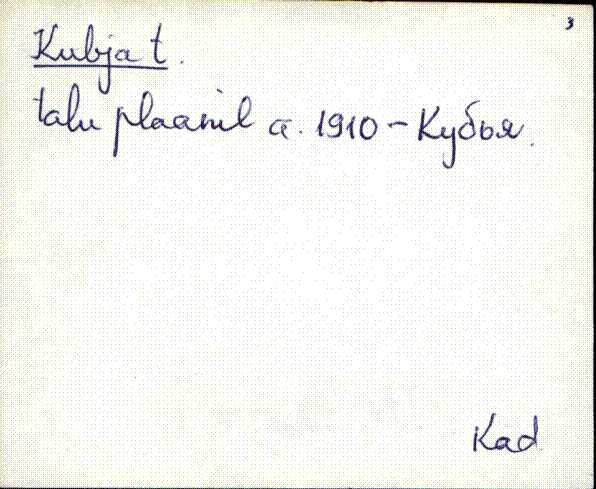 3
Kubja t.
talu plaanil a. 1910 - Кубья.
Kad